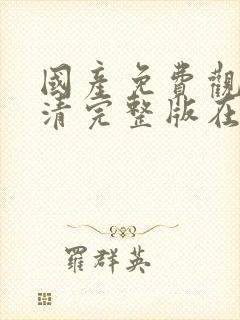 國產免費觀
清完整版在
羅群英